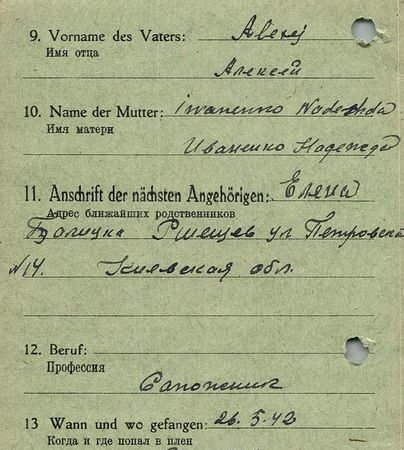 9. Vorname des Vaters: Alexej
Имя отца
Алексей
10. Name der Mutter: Iwanenko Nadeshda
Имя матери
Иваненко Надежда
11. Anschrift der nächsten Angehörigen: Елена
Адрес ближайших родственников
Ржещев ул Петровска
№14. Киевская обл.
12. Beruf:
Профессия
Сапожник
13 Wann und wo gefangen: 26. 5. 42
Когда и где попал в плен